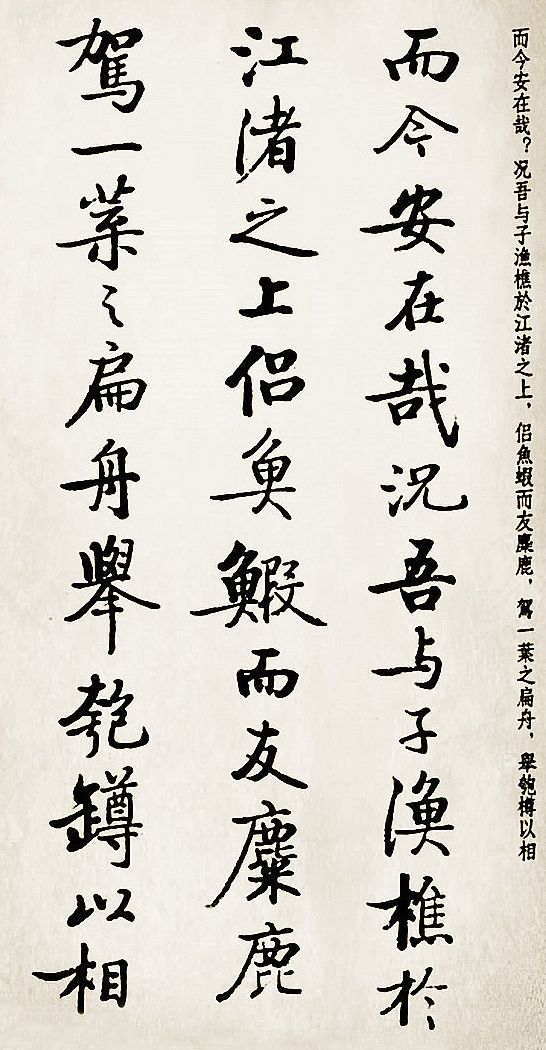 而今安在哉？況吾与子漁樵於江渚之上，侶魚蝦而友麋鹿，駕一葉之扁舟，舉匏樽以相
而今安在哉況吾与子漁樵於
江渚之上侶魚鰕而友麋鹿
駕一葉之扁舟舉匏罇以相